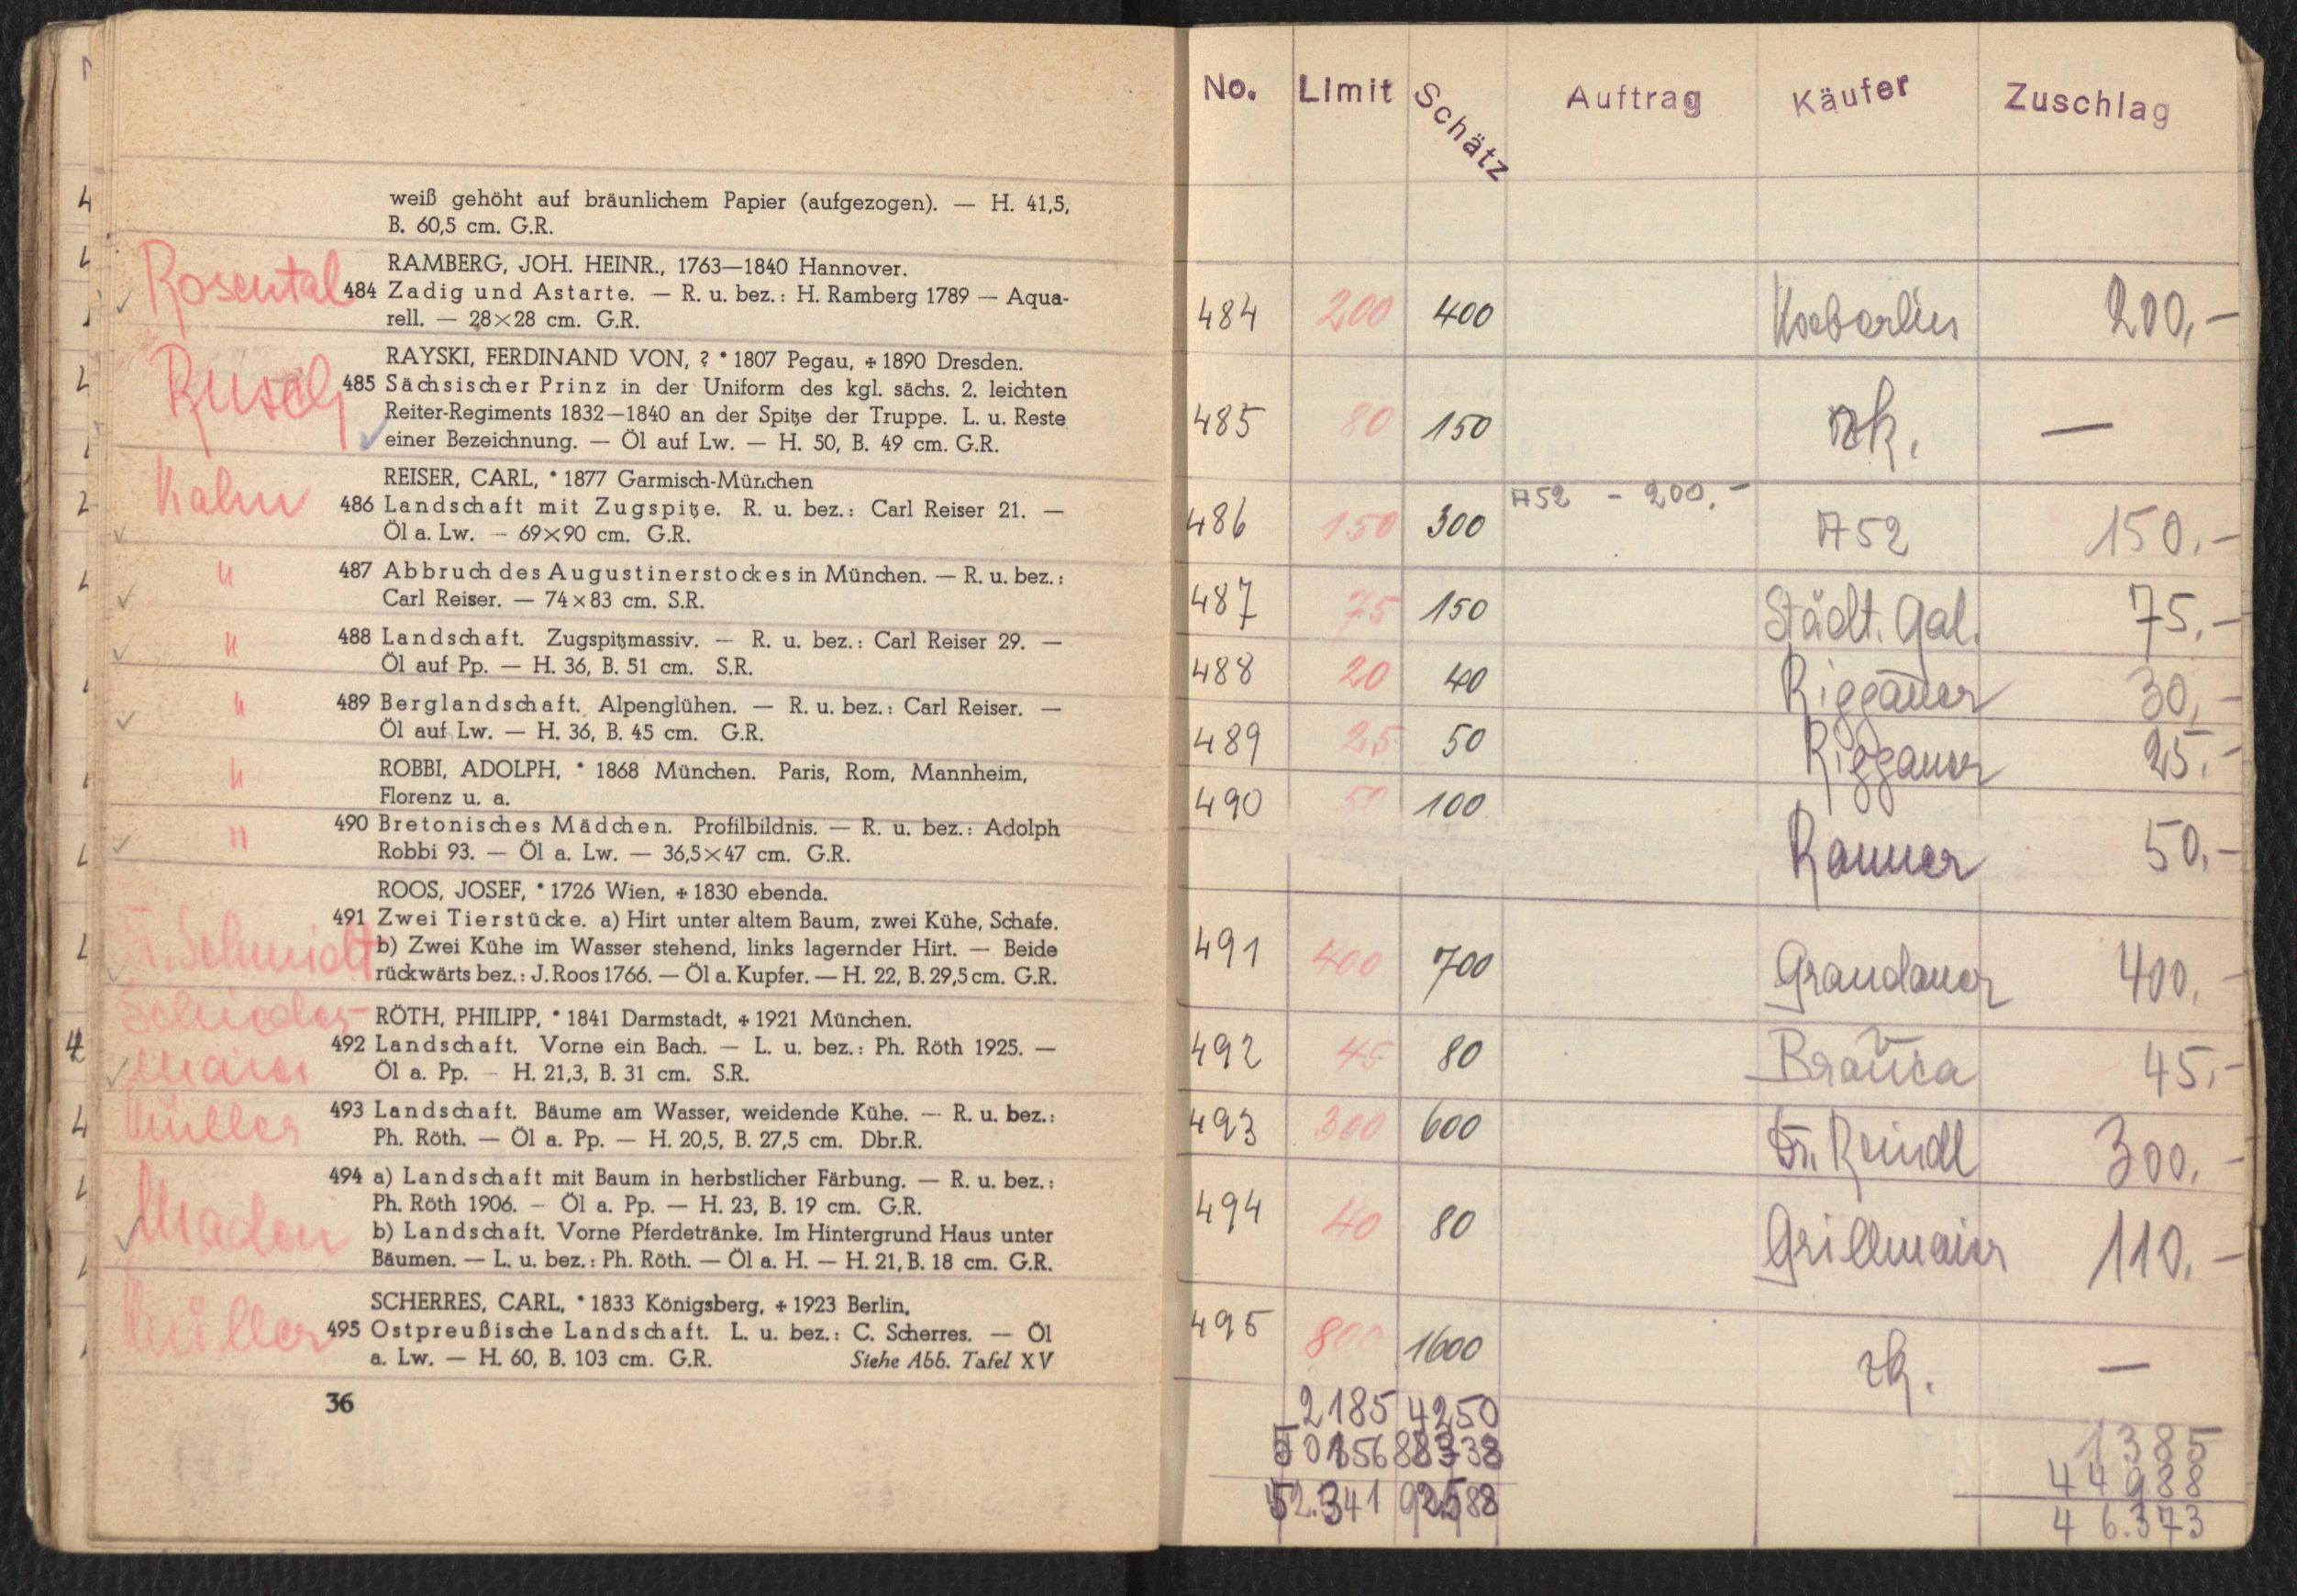 weiß gehöht auf bräunlichem Papier (aufgezogen). — H. 41,5,
B. 60,5 cm. G.R.
Rosental
RAMBERG, JOH. HEINR., 1763—1840 Hannover.
484 Zadig und Astarte. — R. u. bez.: H. Ramberg 1789 — Aqua-
rell. — 28×28 cm. G.R.
Rusch
RAYSKI, FERDINAND VON, ? * 1807 Pegau, + 1890 Dresden.
485 Sächsischer Prinz in der Uniform des kgl. sächs. 2. leichten
Reiter-Regiments 1832—1840 an der Spitze der Truppe. L. u. Reste
einer Bezeichnung. — Öl auf Lw. — H. 50, B. 49 cm. G.R.
Kahn
REISER, CARL, * 1877 Garmisch-München
486 Landschaft mit Zugspitze. R. u. bez.: Carl Reiser 21. —
Öl a. Lw. — 69×90 cm. G.R.
" 487 Abbruch des Augustinerstockes in München. — R. u. bez.:
Carl Reiser. — 74×83 cm. S.R.
" 488 Landschaft. Zugspitzmassiv. — R. u. bez.: Carl Reiser 29. —
Öl auf Pp. — H. 36, B. 51 cm. S.R.
" 489 Berglandschaft. Alpenglühen. — R. u. bez.: Carl Reiser. —
Öl auf Lw. — H. 36, B. 45 cm. G.R.
" ROBBI, ADOLPH, * 1868 München. Paris, Rom, Mannheim,
Florenz u. a.
" 490 Bretonisches Mädchen. Profilbildnis. — R. u. bez.: Adolph
Robbi 93. — Öl a. Lw. — 36,5×47 cm. G.R.
ROOS, JOSEF, * 1726 Wien, + 1830 ebenda.
491 Zwei Tierstücke. a) Hirt unter altem Baum, zwei Kühe, Schafe.
Schmidt b) Zwei Kühe im Wasser stehend, links lagernder Hirt. — Beide
rückwärts bez.: J. Roos 1766. — Öl a. Kupfer. — H. 22, B. 29,5 cm. G.R.
RÖTH, PHILIPP, * 1841 Darmstadt, + 1921 München.
492 Landschaft. Vorne ein Bach. — L. u. bez.: Ph. Röth 1925. —
Öl a. Pp. — H. 21,3, B. 31 cm. S.R.
Müller 493 Landschaft. Bäume am Wasser, weidende Kühe. — R. u. bez.:
Ph. Röth. — Öl a. Pp. — H. 20,5, B. 27,5 cm. Dbr.R.
494 a) Landschaft mit Baum in herbstlicher Färbung. — R. u. bez.:
Ph. Röth 1906. — Öl a. Pp. — H. 23, B. 19 cm. G.R.
b) Landschaft. Vorne Pferdetränke. Im Hintergrund Haus unter
Bäumen. — L. u. bez.: Ph. Röth. — Öl a. H. — H. 21, B. 18 cm. G.R.
SCHERRES, CARL, * 1833 Königsberg, + 1923 Berlin,
Müller 495 Ostpreußische Landschaft. L. u. bez.: C. Scherres. — Öl
a. Lw. — H. 60, B. 103 cm. G.R. Siehe Abb. Tafel XV
36
No. Limit Schätz Auftrag Käufer Zuschlag
484 200 400 200,-
485 80 150 rk. —
486 150 300 A52 - 200.- A52 150.-
487 75 150 Städt. Gal. 75,-
488 20 40 Riggauer 30,-
489 25 50 Riggauer 25.-
490 50 100 50,-
491 400 700 Grandauer 400,-
492 45 80 45,-
493 300 600 Dr. Reindl 300.-
494 40 80 Grillmaier 110,-
495 800 1600 rk. —
2185 4250
50156 88338
52.341 92588
1385
44988
46.373